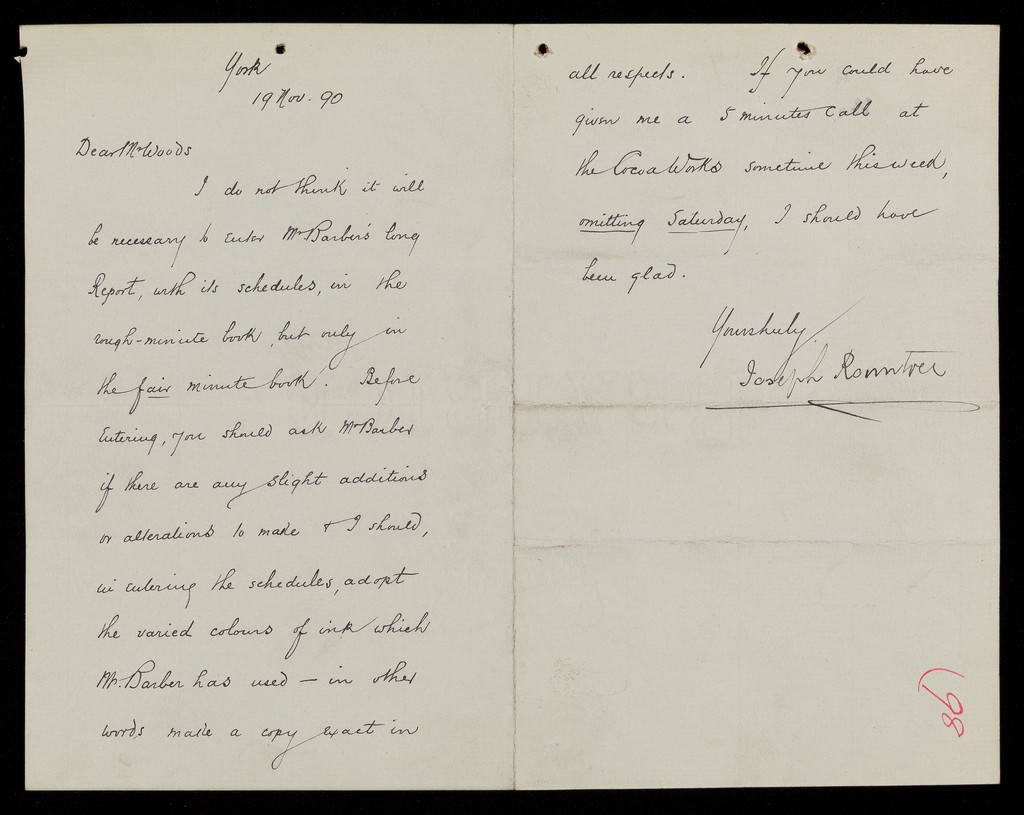 York
19 Nov. 90
Dear Mr Woods
I do not think it will
be necessary to enter Mr Barber's long
Report, with its schedules, in the
rough-minute book, but only in
the fair minute book. Before
entering, you should ask Mr Barber
if there are any slight additions
or alterations to make & I should,
in entering the schedules, adopt
the varied colours of ink which
Mr. Barber has used — in other
words make a copy exact in
all respects. If you could have
given me a 5 minutes call at
the Cocoa Works sometime this week,
omitting Saturday, I should have
been glad.
Yours truly
Joseph Rowntree
98)